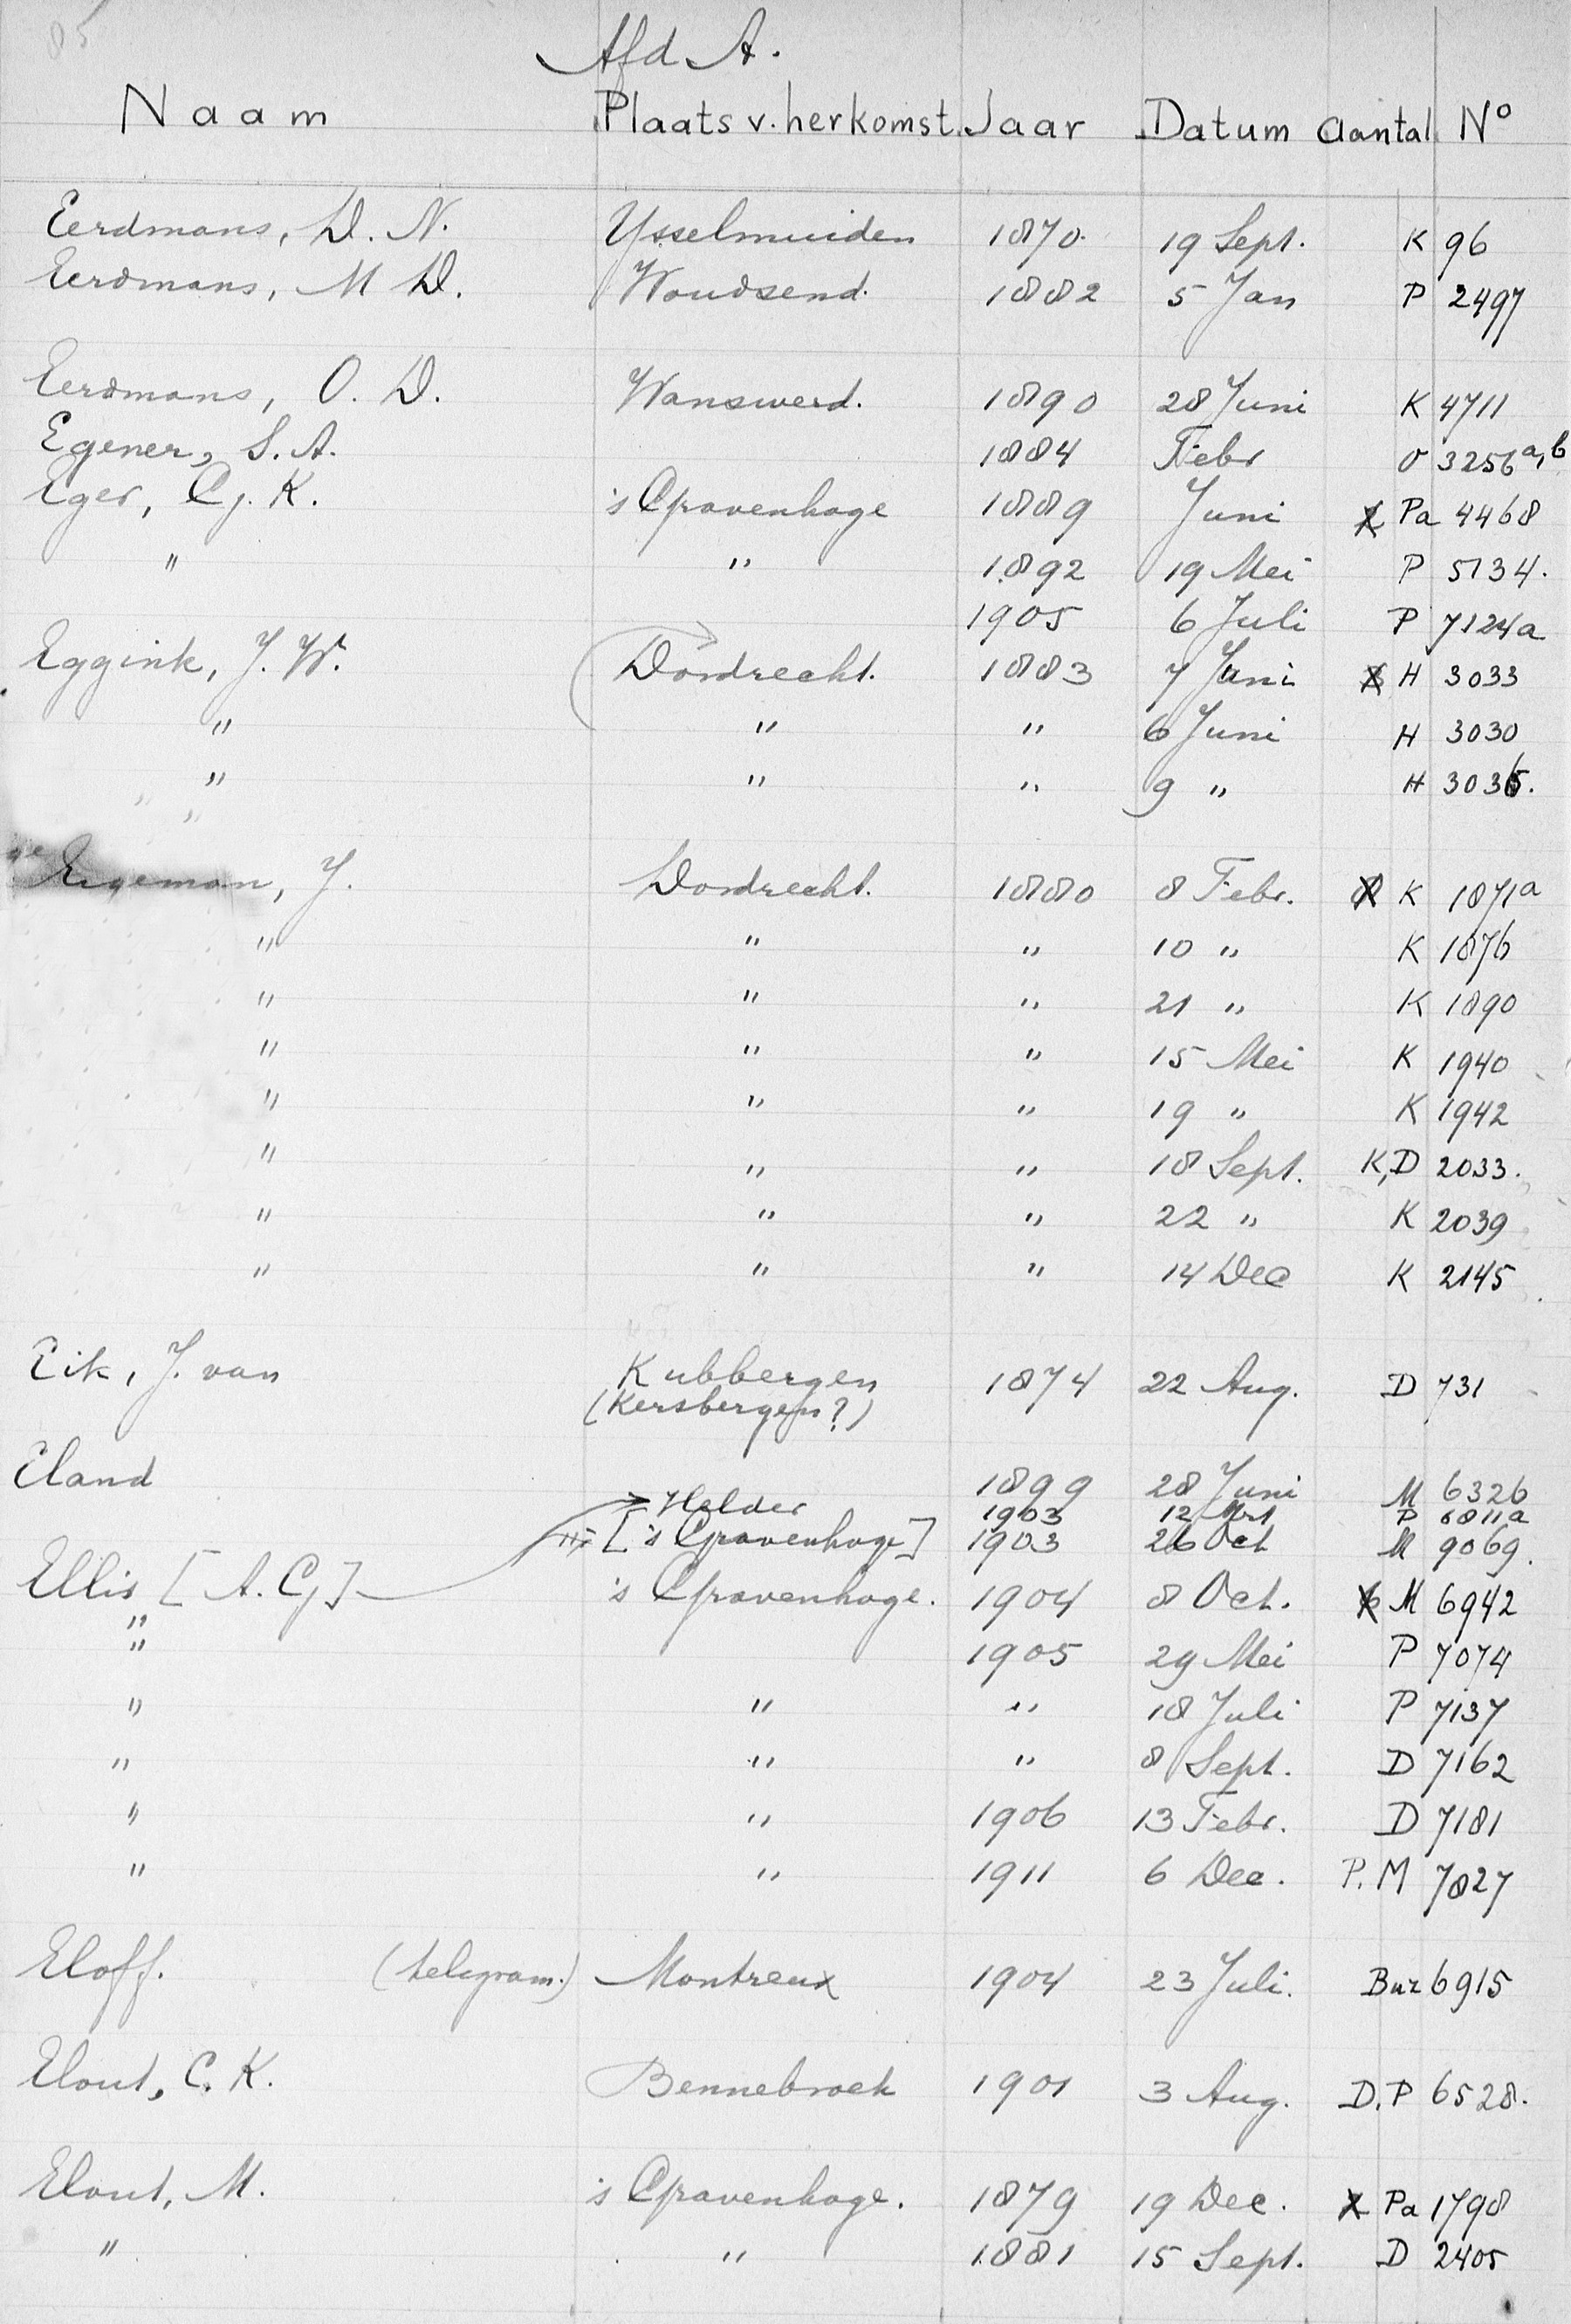 85
Afd A.
Naam Plaats v. herkomst. Jaar Datum Aantal No
Eerdmans, D. N. Ysselmuiden 1870. 19 Sept. K 96
Eerdmans, M D. Woudsend. 1882 5 Jan P 2497
Eerdmans, O. D. Wanswerd. 1890 28 Juni K 4711
Egener, S. A. 1884 Febr O 3256 a,b
Eger, G. K. 's Gravenhage 1889 Juni Pa 4468
" " 1892 19 Mei P 5134.
1905 6 Juli P 7124a
Eggink, J. W. Dordrecht. 1883 7 Juni H 3033
" " " 6 Juni H 3030
" " " 9 " H 3036.
Eigeman, J. Dordrecht. 1880 8 Febr. K 1871a
" " " 10 " K 1876
" " " 21 " K 1890
" " " 15 Mei K 1940
" " " 19 " K 1942
" " " 18 Sept. K,D 2033.
" " " 22 " K 2039
" " " 14 Dec K 2145
Eik, J. van Kubbergen 1874 22 Aug. D 731
(Kersbergen?)
Eland 1899 28 Juni M 6326
Helder 1903 12 Mrt P 6811a
['s Gravenhage] 1903 26 Oct M 9069.
Ellis [A. G] 's Gravenhage. 1904 8 Oct. M 6942
"
" 1905 29 Mei P 7074
" " " 18 Juli P 7137
" " " 8 Sept. D 7162
" " 1906 13 Febr. D 7181
" " 1911 6 Dec. P. M 7827
Eloff. (telegram.) Montreux 1904 23 Juli. Buz 6915
Elout, C. K. Bennebroek 1901 3 Aug. D. P 6528.
Elout, M. 's Gravenhage. 1879 19 Dec. Pa 1798
" " 1881 15 Sept. D 2405